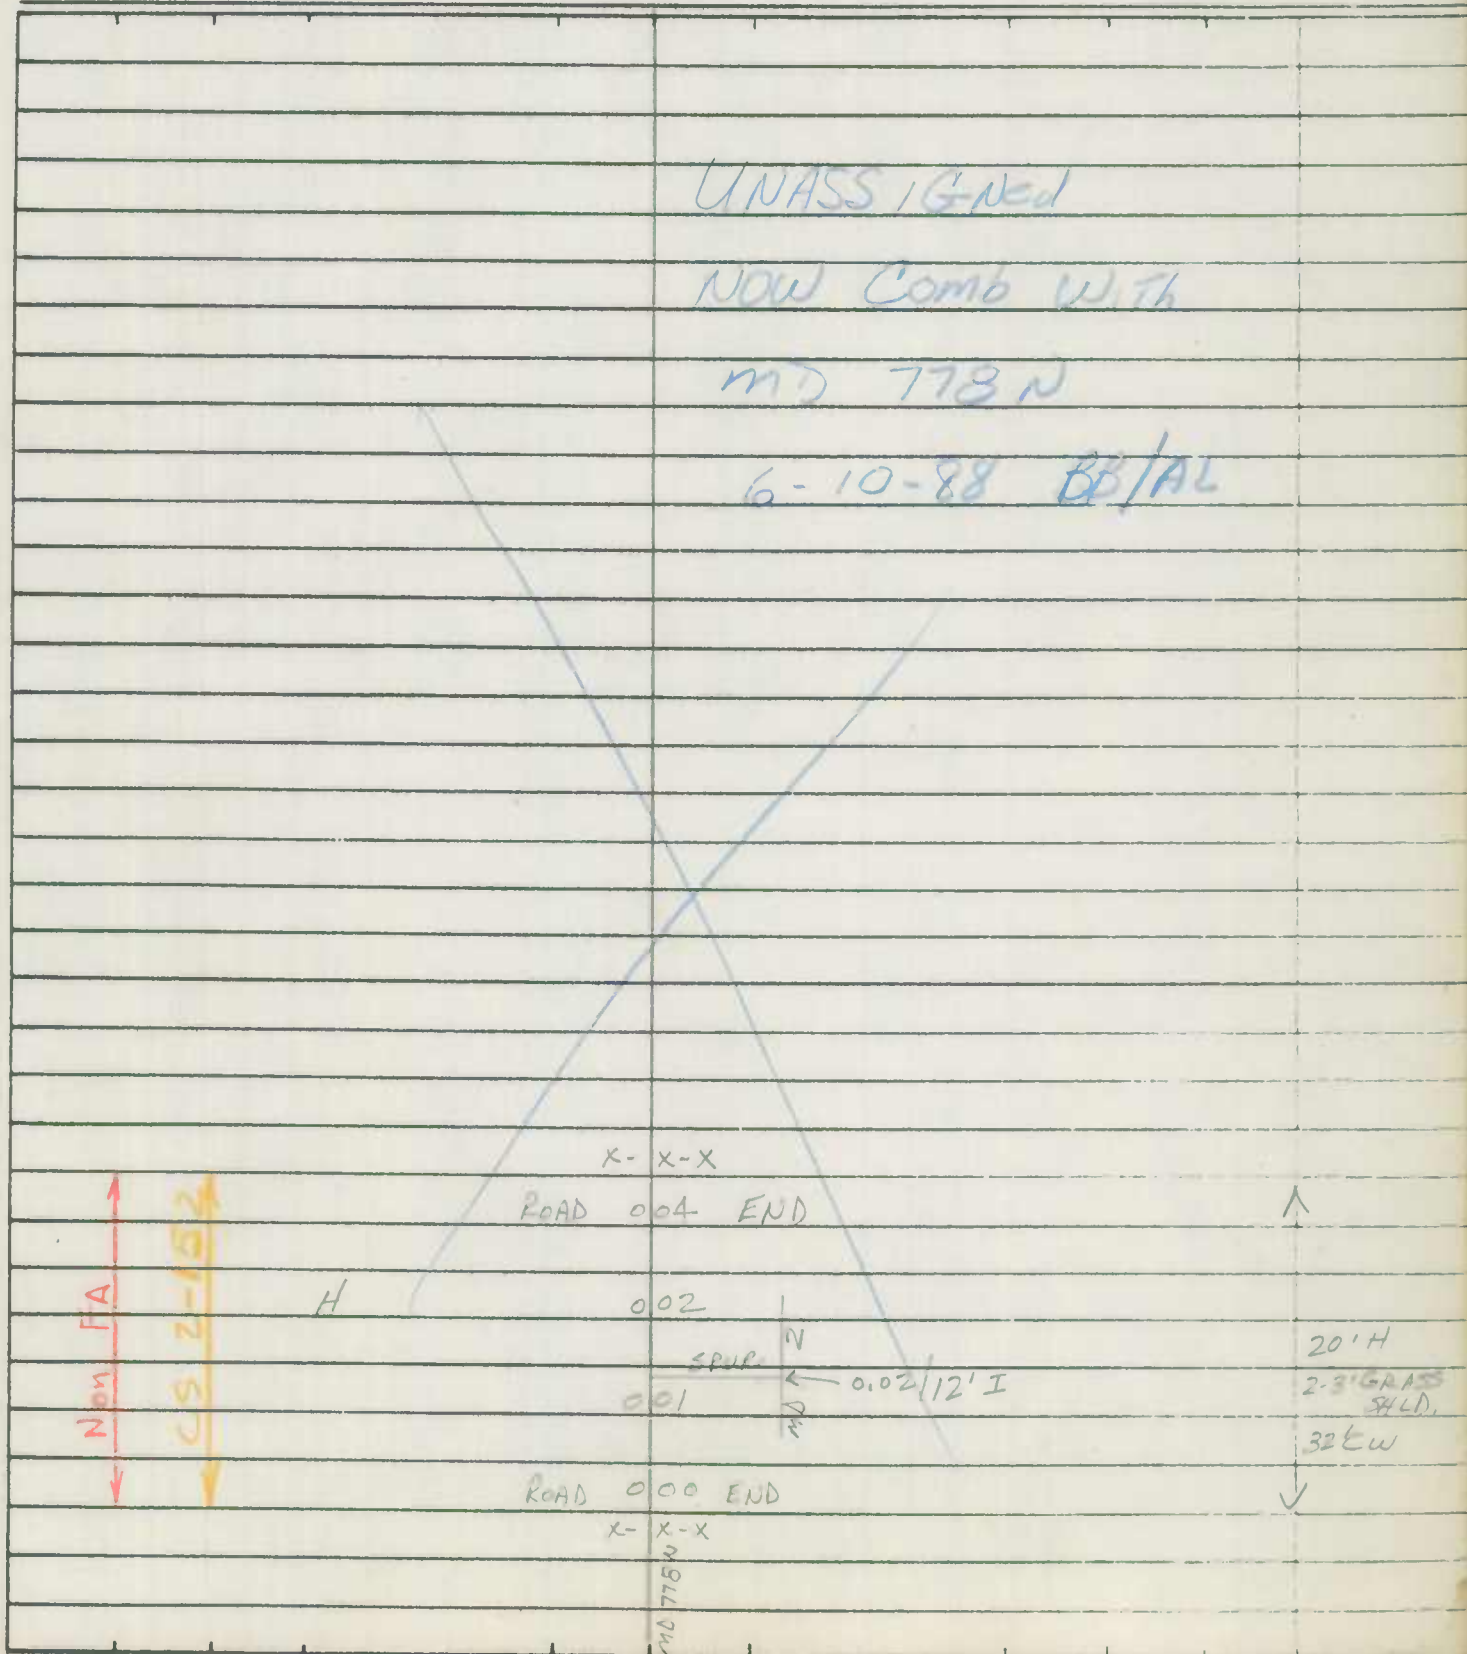 UNASSIGNed
NOW Comb WiTh
MD 778 N
6-10-88 BB/AL
X- X-X
ROAD 0 04 END
H 0 02
N
SPUR
0.02/12' I
0 01
MD
ROAD 0 00 END
X- X-X
Non FA
CS 2-152
20' H
2-3' GRASS
SHLD.
MD 778